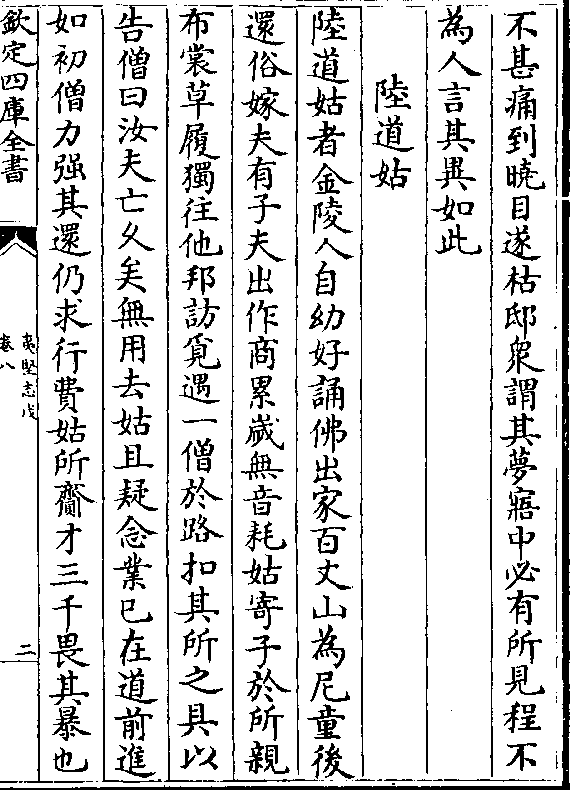 不甚痛到曉目遂枯邸衆謂其夢寤中必有所見程不
為人言其異如此
陸道姑
陸道姑者金陵人自幼好誦佛出家百丈山為尼童後
還俗嫁夫有子夫出作商累嵗無音耗姑寄子於所親
布裳草履獨往他邦訪覓遇一僧於路扣其所之具以
告僧曰汝夫亡久矣無用去姑且疑念業已在道前進
如初僧力强其還仍求行費姑所齎才三千畏其暴也
欽定四庫全書
夷堅志戊
卷八
二